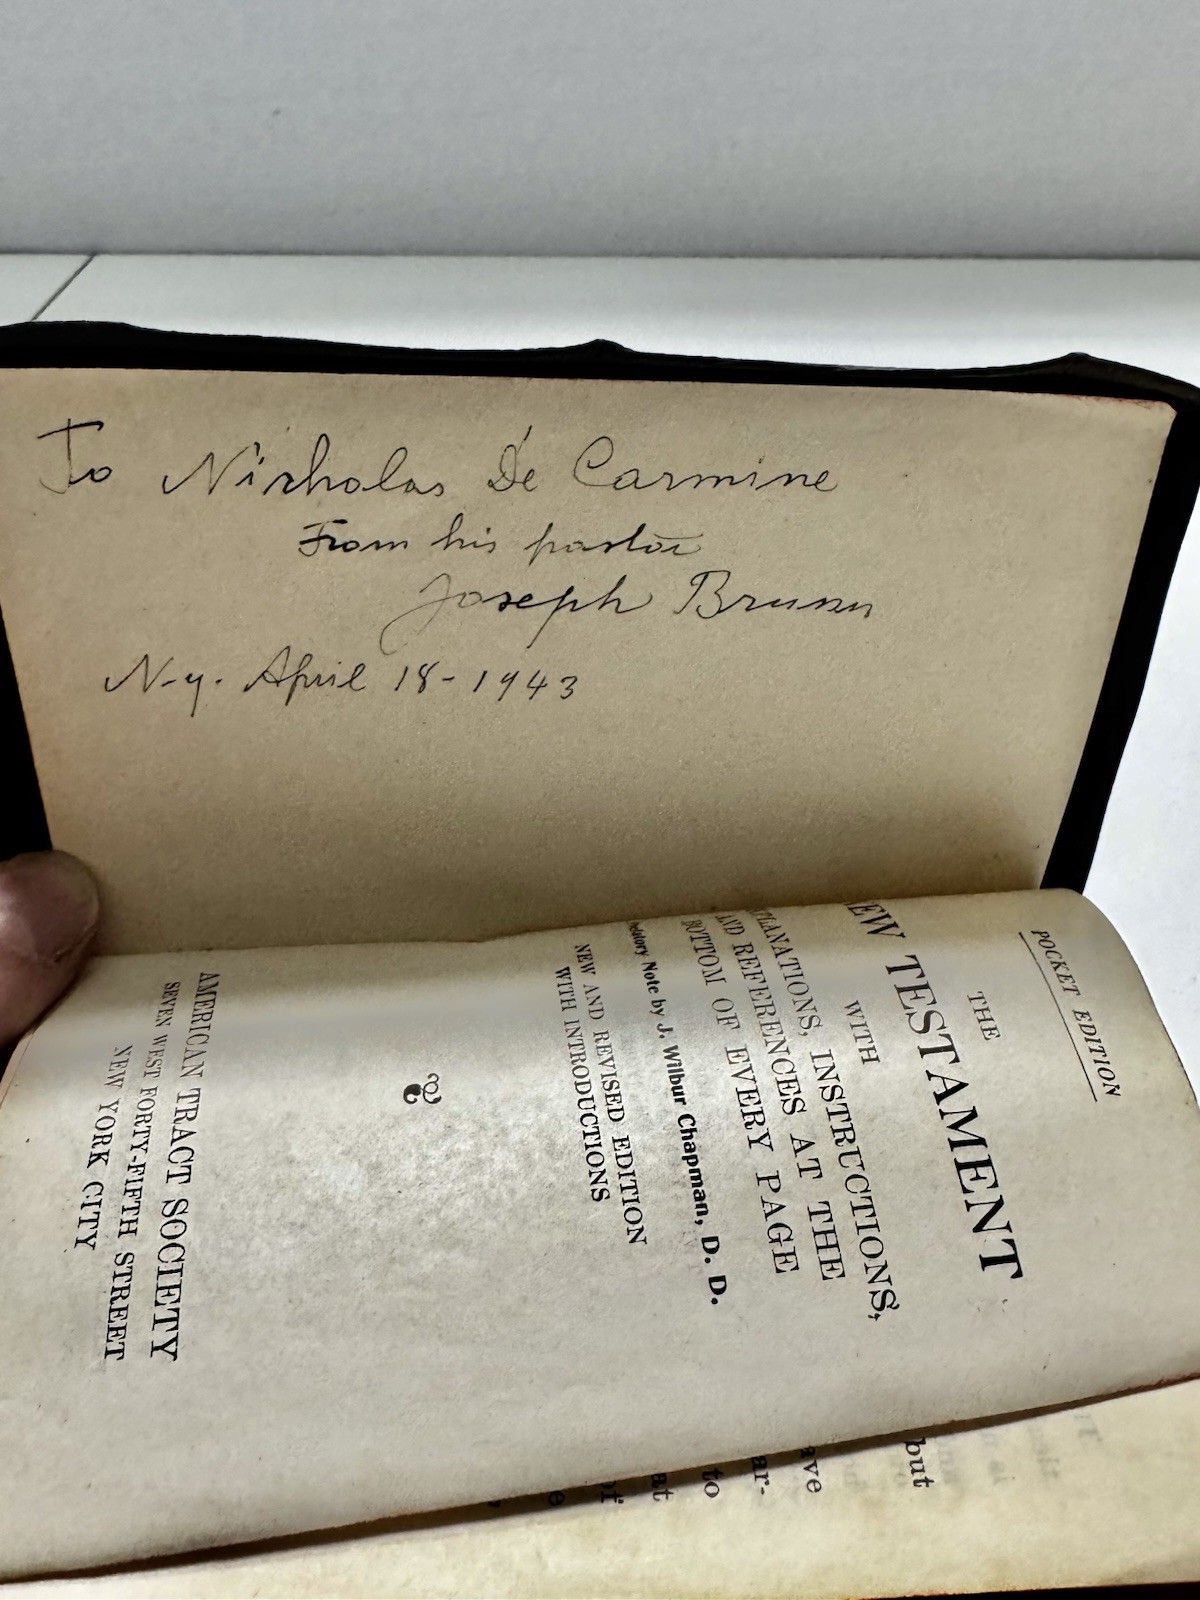 To Nicholas De Carmine
From his pastor
Joseph Brunn
N.y. April 18-1943
POCKET EDITION
THE
NEW TESTAMENT
WITH
EXPLANATIONS, INSTRUCTIONS,
AND REFERENCES AT THE
BOTTOM OF EVERY PAGE
Note by J. Wilbur Chapman, D. D.
NEW AND REVISED EDITION
WITH INTRODUCTIONS
AMERICAN TRACT SOCIETY
SEVEN WEST FORTY-FIFTH STREET
NEW YORK CITY
but
ave
ar-
to
at
of
e